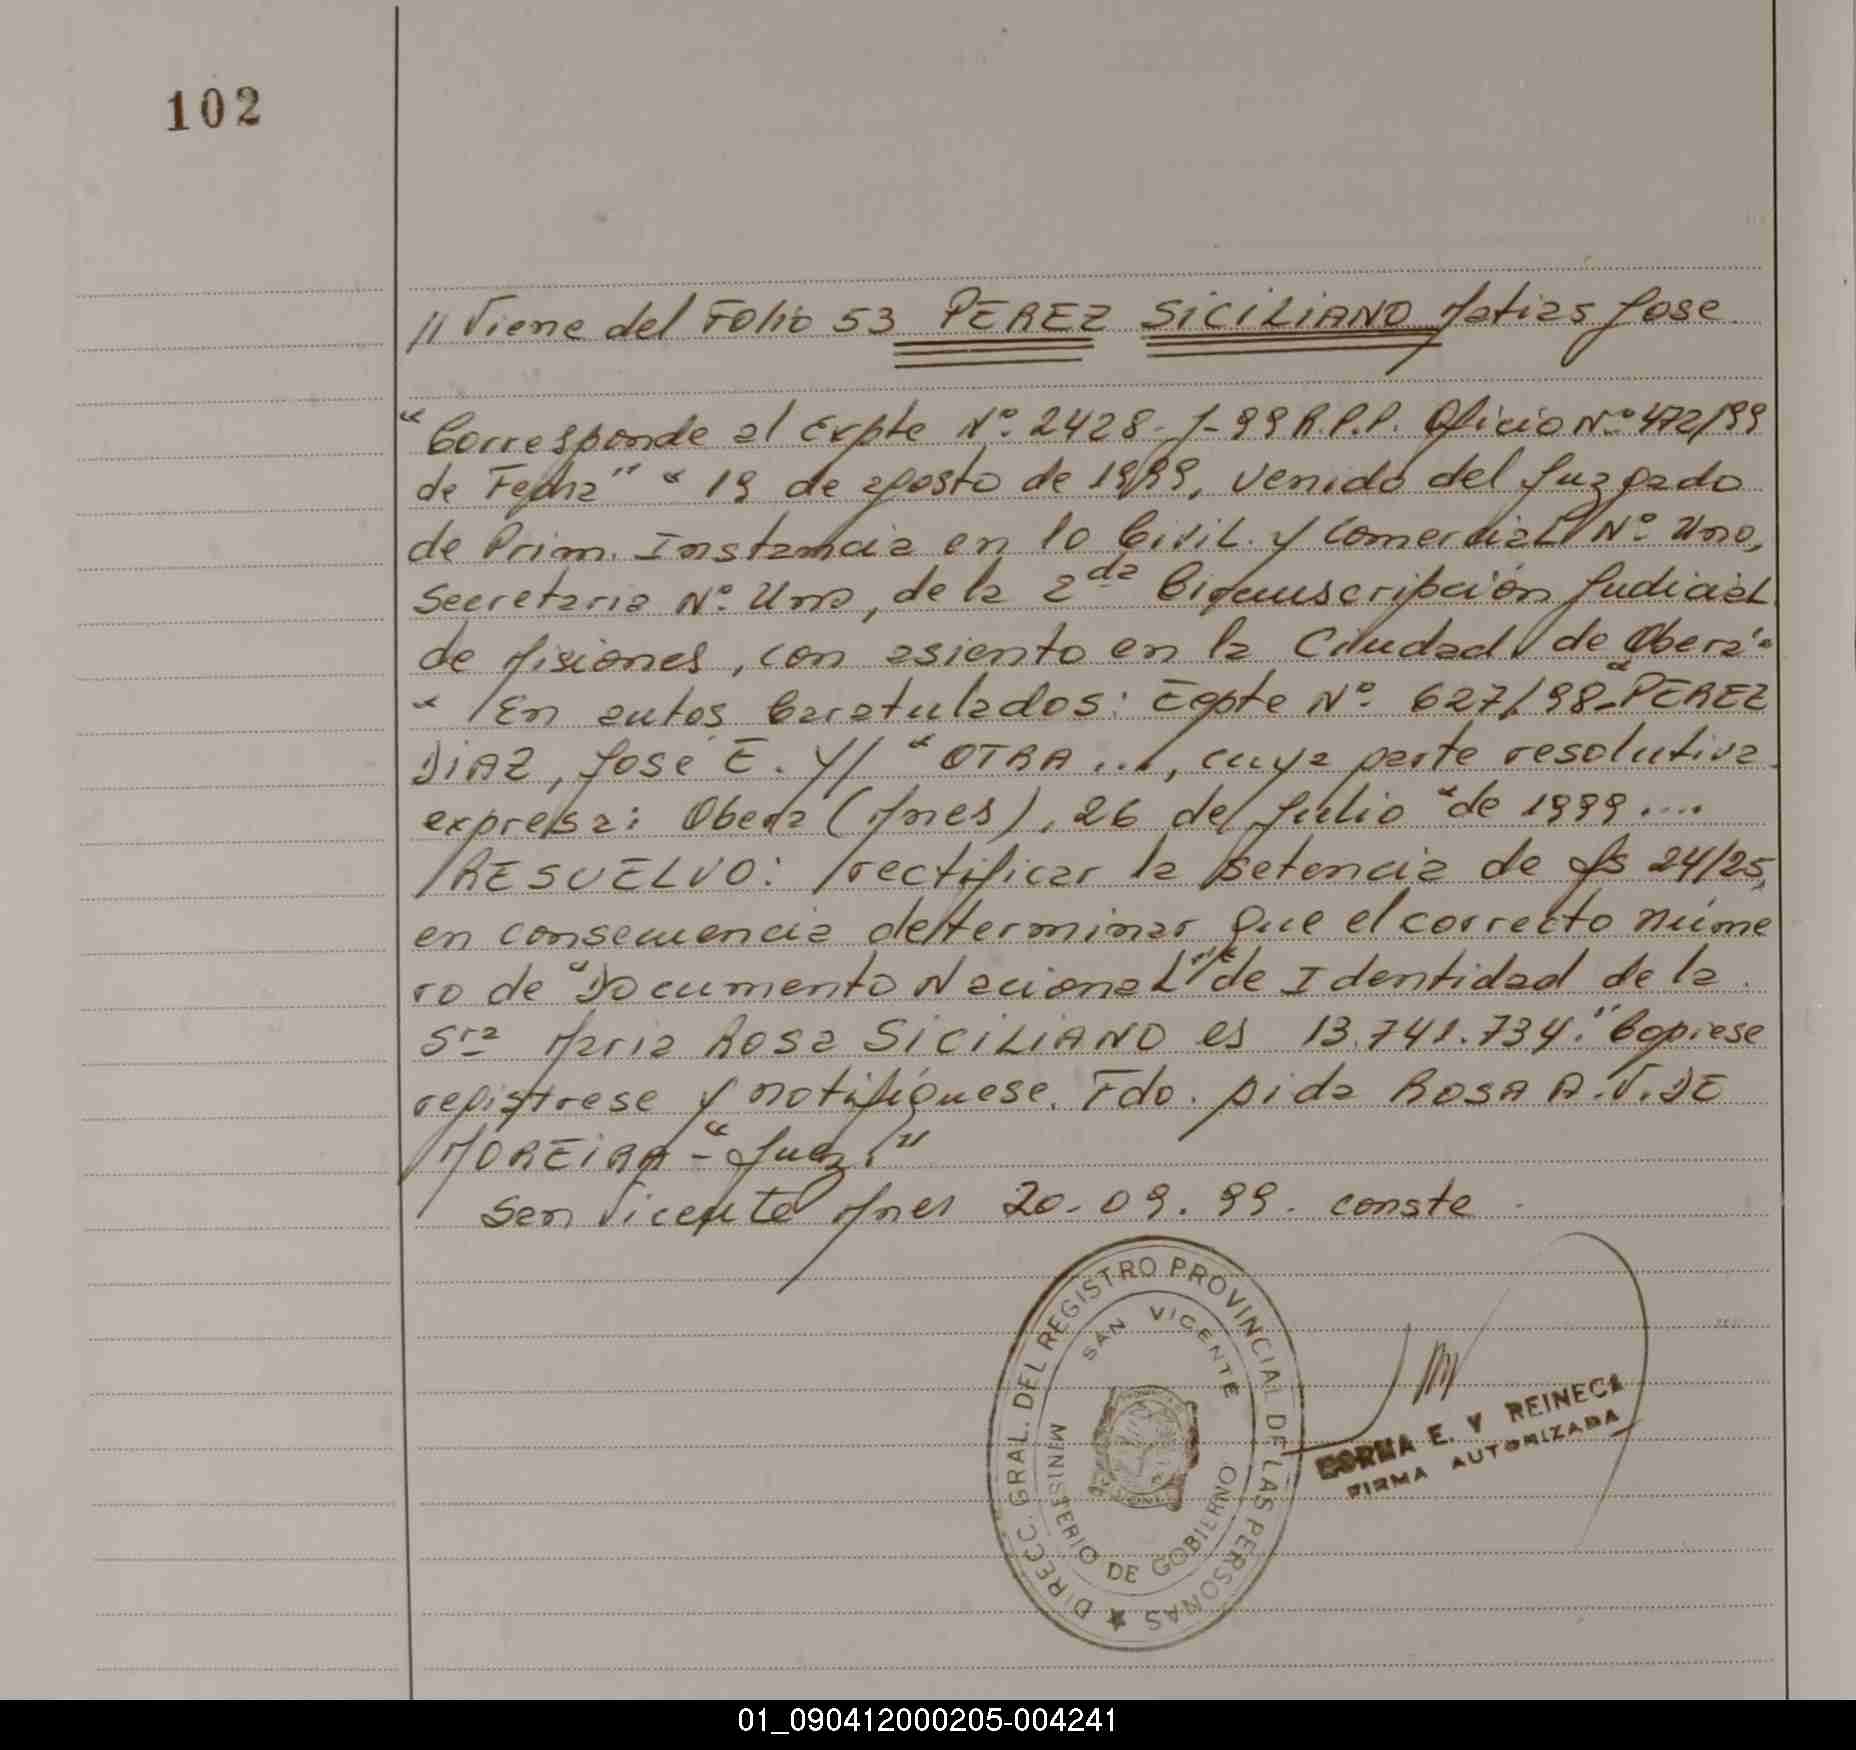 102
// Viene del Folio 53 PEREZ SiCiLiANO Matias Jose
"Corresponde al Expte Nº 2428-J-99 R.P.P. Oficio Nº 472/99
de Fecha" "19 de agosto de 1999, venido del Juzgado
de Prim. Instancia en lo Civil. y Comercial Nº Uno,
Secretaria Nº Uno, de la 2da Circunscripción Judicial
de Misiones, con asiento en la Ciudad de Obera"
"En autos Caratulados: Expte Nº 627/98-"PEREZ
DiAZ, José E. y/ "OTRA ..., cuya parte resolutiva
expresa: Obera (Mnes), 26 de Julio "de 1999....
RESUELVO: rectificar la setencia de fs 24/25,
en consecuencia determinar que el correcto núme
ro de "Documento Nacional" "de Identidad de la
Sra Maria Rosa SiCiLiANO es 13.741.734." Copiese
registrese y notifíquese. Fdo. Aida ROSA A.V. DE
MOREiRA - "Juez."
San Vicente Mnes 20-09.99. conste
DIRECC. GRAL. DEL REGISTRO PROVINCIAL DE LAS PERSONAS
SAN VICENTE
MINISTERIO DE GOBIERNO
E. V REINECK
FIRMA AUTORIZADA
01_090412000205-004241